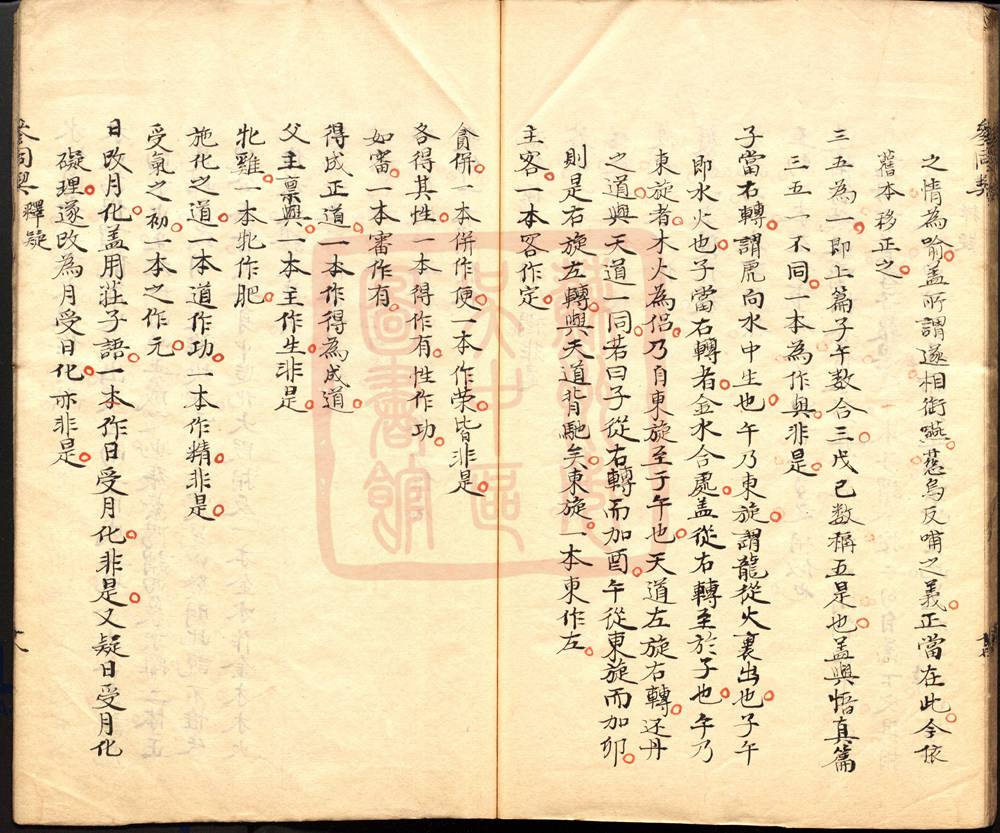 參同契
之情為喻盖所謂遂相銜嚥慈烏反哺之義正當在此今依
舊本移正之
三五為一即上篇子午数合三戊己数稱五是也盖與悟真篇
三五一不同一本為作與非是
子當右轉謂虎向水中生也午乃東旋謂龍從火裏出也子午
即水火也子當右轉者金水合處盖從右轉至於子也午乃
東旋者木火為侣乃自東旋至于午也天道左旋右轉還丹
之道與天道一同若曰子從右轉而加酉午從東旋而加卯
則是右旋左轉與天道背馳矣東旋一本東作左
主客一本客作定
貪併一本併作便一本作荣皆非是
各得其性一本得作有性作功
如審一本審作有
得成正道一本作得為成道
父主禀與一本主作生非是
牝雞一本牝作肥
施化之道一本道作功一本作精非是
受氣之初一本之作元
日改月化盖用莊子語一本作日受月化非是又疑日受月化
礙理遂改為月受日化亦非是
參同契
釋疑